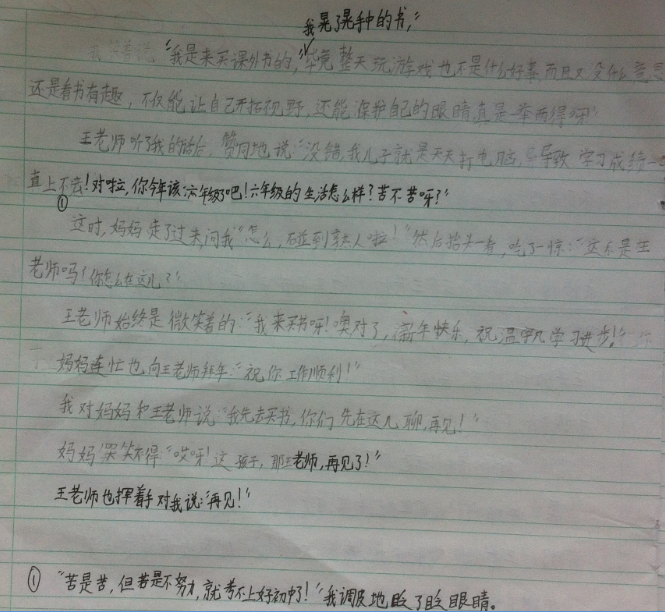 我晃了晃手中的书,"
"我是来买课外书的,毕竟整天玩游戏也不是什么好事而且又没什么意思
还是看书有趣,不仅能让自己开拓视野,还能保护自己的眼睛真是一举两得呀"
王老师听了我的话后,赞同地说:"没错,我儿子就是天天打电脑,导致学习成绩一
直上不去!对啦,你今年该六年级了吧!六年级的生活怎么样?苦不苦呀!"
①
这时,妈妈走了过来,问我"怎么,碰到熟人啦!"然后抬头一看,吃了一惊:"这不是王
老师吗!你怎么在这儿?"
王老师始终是微笑着的:"我来买书呀!噢对了,新年快乐,祝温学进步!"
妈妈连忙也向王老师拜年:"祝你工作顺利!"
我对妈妈和王老师说"我先去买书,你们先在这儿聊,再见!"
妈妈哭笑不得"哎呀!这孩子,那王老师,再见了!"
王老师也挥着手对我说:"再见!"
① "苦是苦,但若是不努力,就考不上好初中了!"我调皮地眨了眨眼睛。